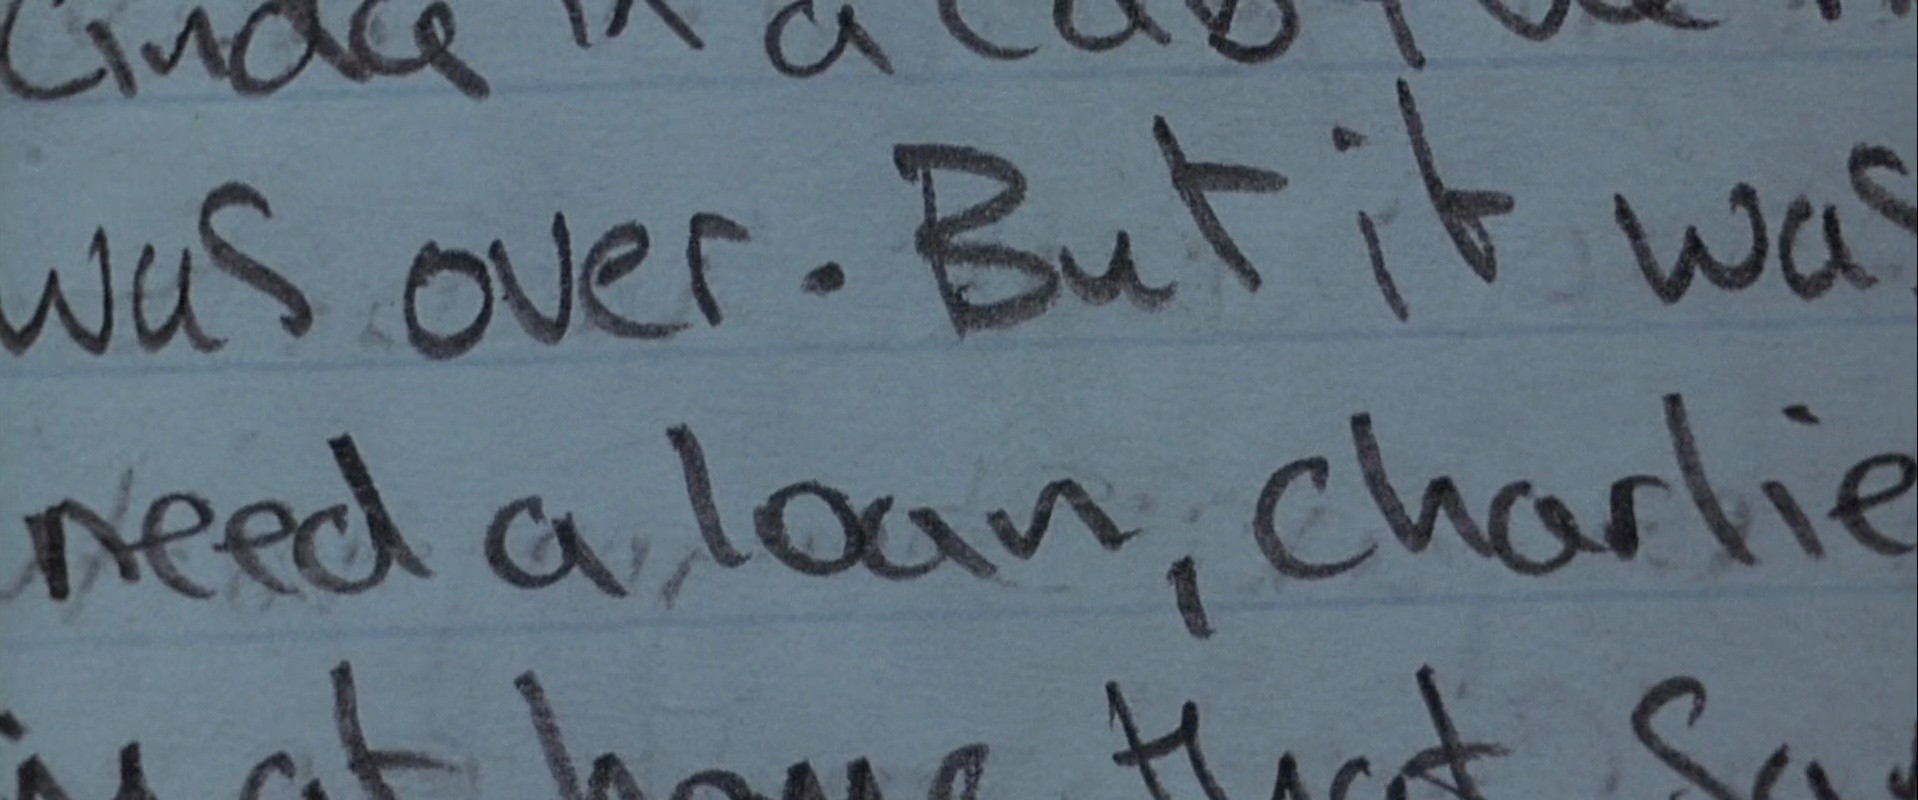 in a cab,
was over. But it was
need a loan, charlie
at home that